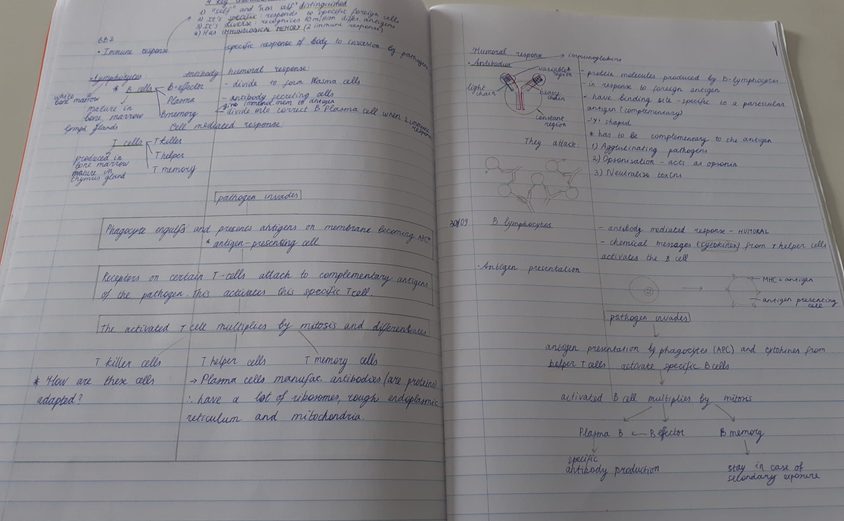 1) "self" and "non self" distinguished
2) It's specific responds to specific foreign cells
3) It's diverse recognises 10 million differ. antigens
4) Has immunological memory (2° immune response)
• Immune response
specific response of body to invasion by pathogen
Lymphocytes
* B cells
B-effector
Plasma
B memory
white
bone marrow
mature in
bone marrow
lymph glands
antibody humoral response:
- divide to form plasma cells
- antibody secreting cells
divide into correct B plasma cell when
Cell mediated response
T cells
T killer
T helper
T memory
produced in
bone marrow
mature in
thymus gland
pathogen invades
Phagocyte engulfs and presents antigens on membrane becoming APC*
* antigen-presenting cell
Receptors on certain T-cells attach to complementary antigens
of the pathogen. This activates this specific T cell.
The activated T cell multiplies by mitosis and differentiates
T killer cells T helper cells T memory cells
* How are these cells
adapted?
→ Plasma cells manufac. antibodies (are proteins)
∴ have a lot of ribosomes, rough endoplasmic
reticulum and mitochondria.
Humoral response → immunoglobins
• Antibodies
variable
region
light
chain
heavy
chain
constant
region
- protein molecules produced by B-lymphocytes
in response to foreign antigen
- have binding site - specific to a particular
antigen (complementary)
- 'Y' shaped
* has to be complementary to the antigen
They attack:
1) Agglutinating pathogens
2) Opsonisation - acts as opsonin
3) Neutralise toxins
30/03
B lymphocytes
- antibody mediated response - HUMORAL
- chemical messages (cytokines) from T helper cells
activates the B cell
• Antigen presentation
MHC + antigen
antigen presenting
cell
pathogen invades
antigen presentation by phagocytes (APC) and cytokines from
helper T cells activate specific B cells
activated B cell multiplies by mitosis
Plasma B ← B effector B memory
specific
antibody production
stay in case of
secondary exposure